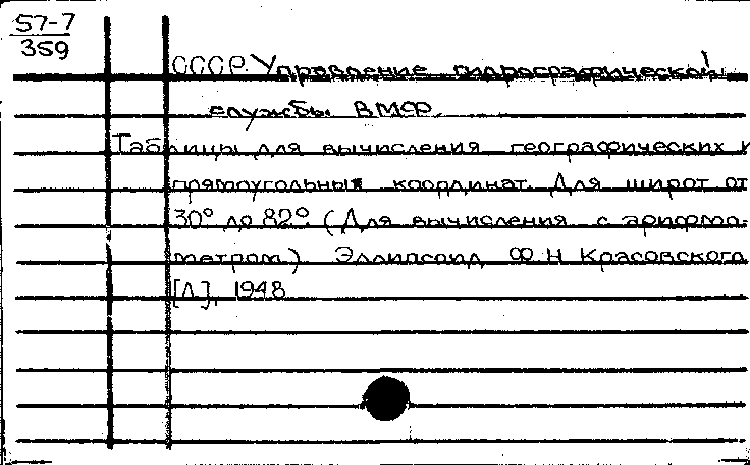 57-7
359
СССР. Управление гидрографической
службы ВМФ.
Таблицы для вычисления географических и
прямоугольных координат. Для широт от
30° до 82° (Для вычисления с арифмо-
метром.) Эллипсоид Ф.Н. Красовского
[Л.], 1948